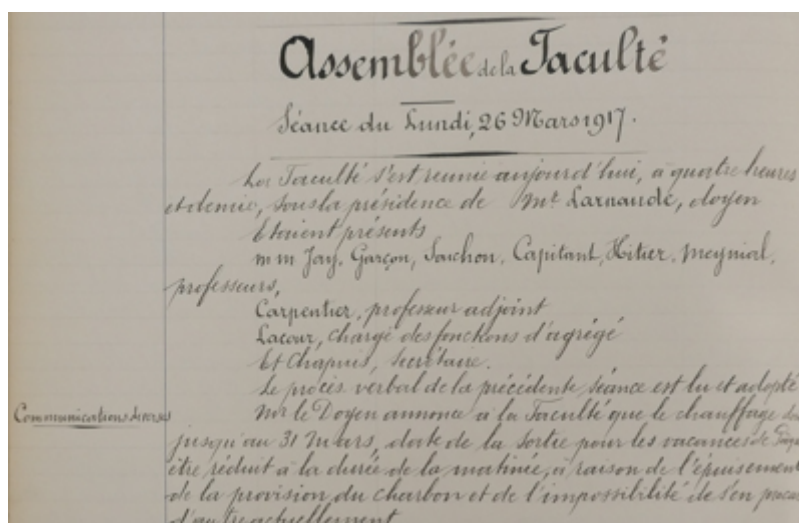 Assemblée de la Faculté
Séance du Lundi, 26 Mars 1917.
La Faculté s'est réunie aujourd'hui, à quatre heures
et demie, sous la présidence de Mr Larnaude, doyen
Etaient présents
m m Jay, Garçon, Souchon, Capitant, Hitier, Meynial,
professeurs,
Carpentier, professeur adjoint
Lacour, chargé des fonctions d'agrégé
Et Chapuis, secrétaire.
Le procès verbal de la précédente séance est lu et adopté
Communications diverses
Mr le Doyen annonce à la Faculté que le chauffage
jusqu'au 31 Mars, date de la sortie pour les vacances de
être réduit à la durée de la matinée, à raison de l'épuisement
de la provision du charbon et de l'impossibilité de s'en
d'autre actuellement